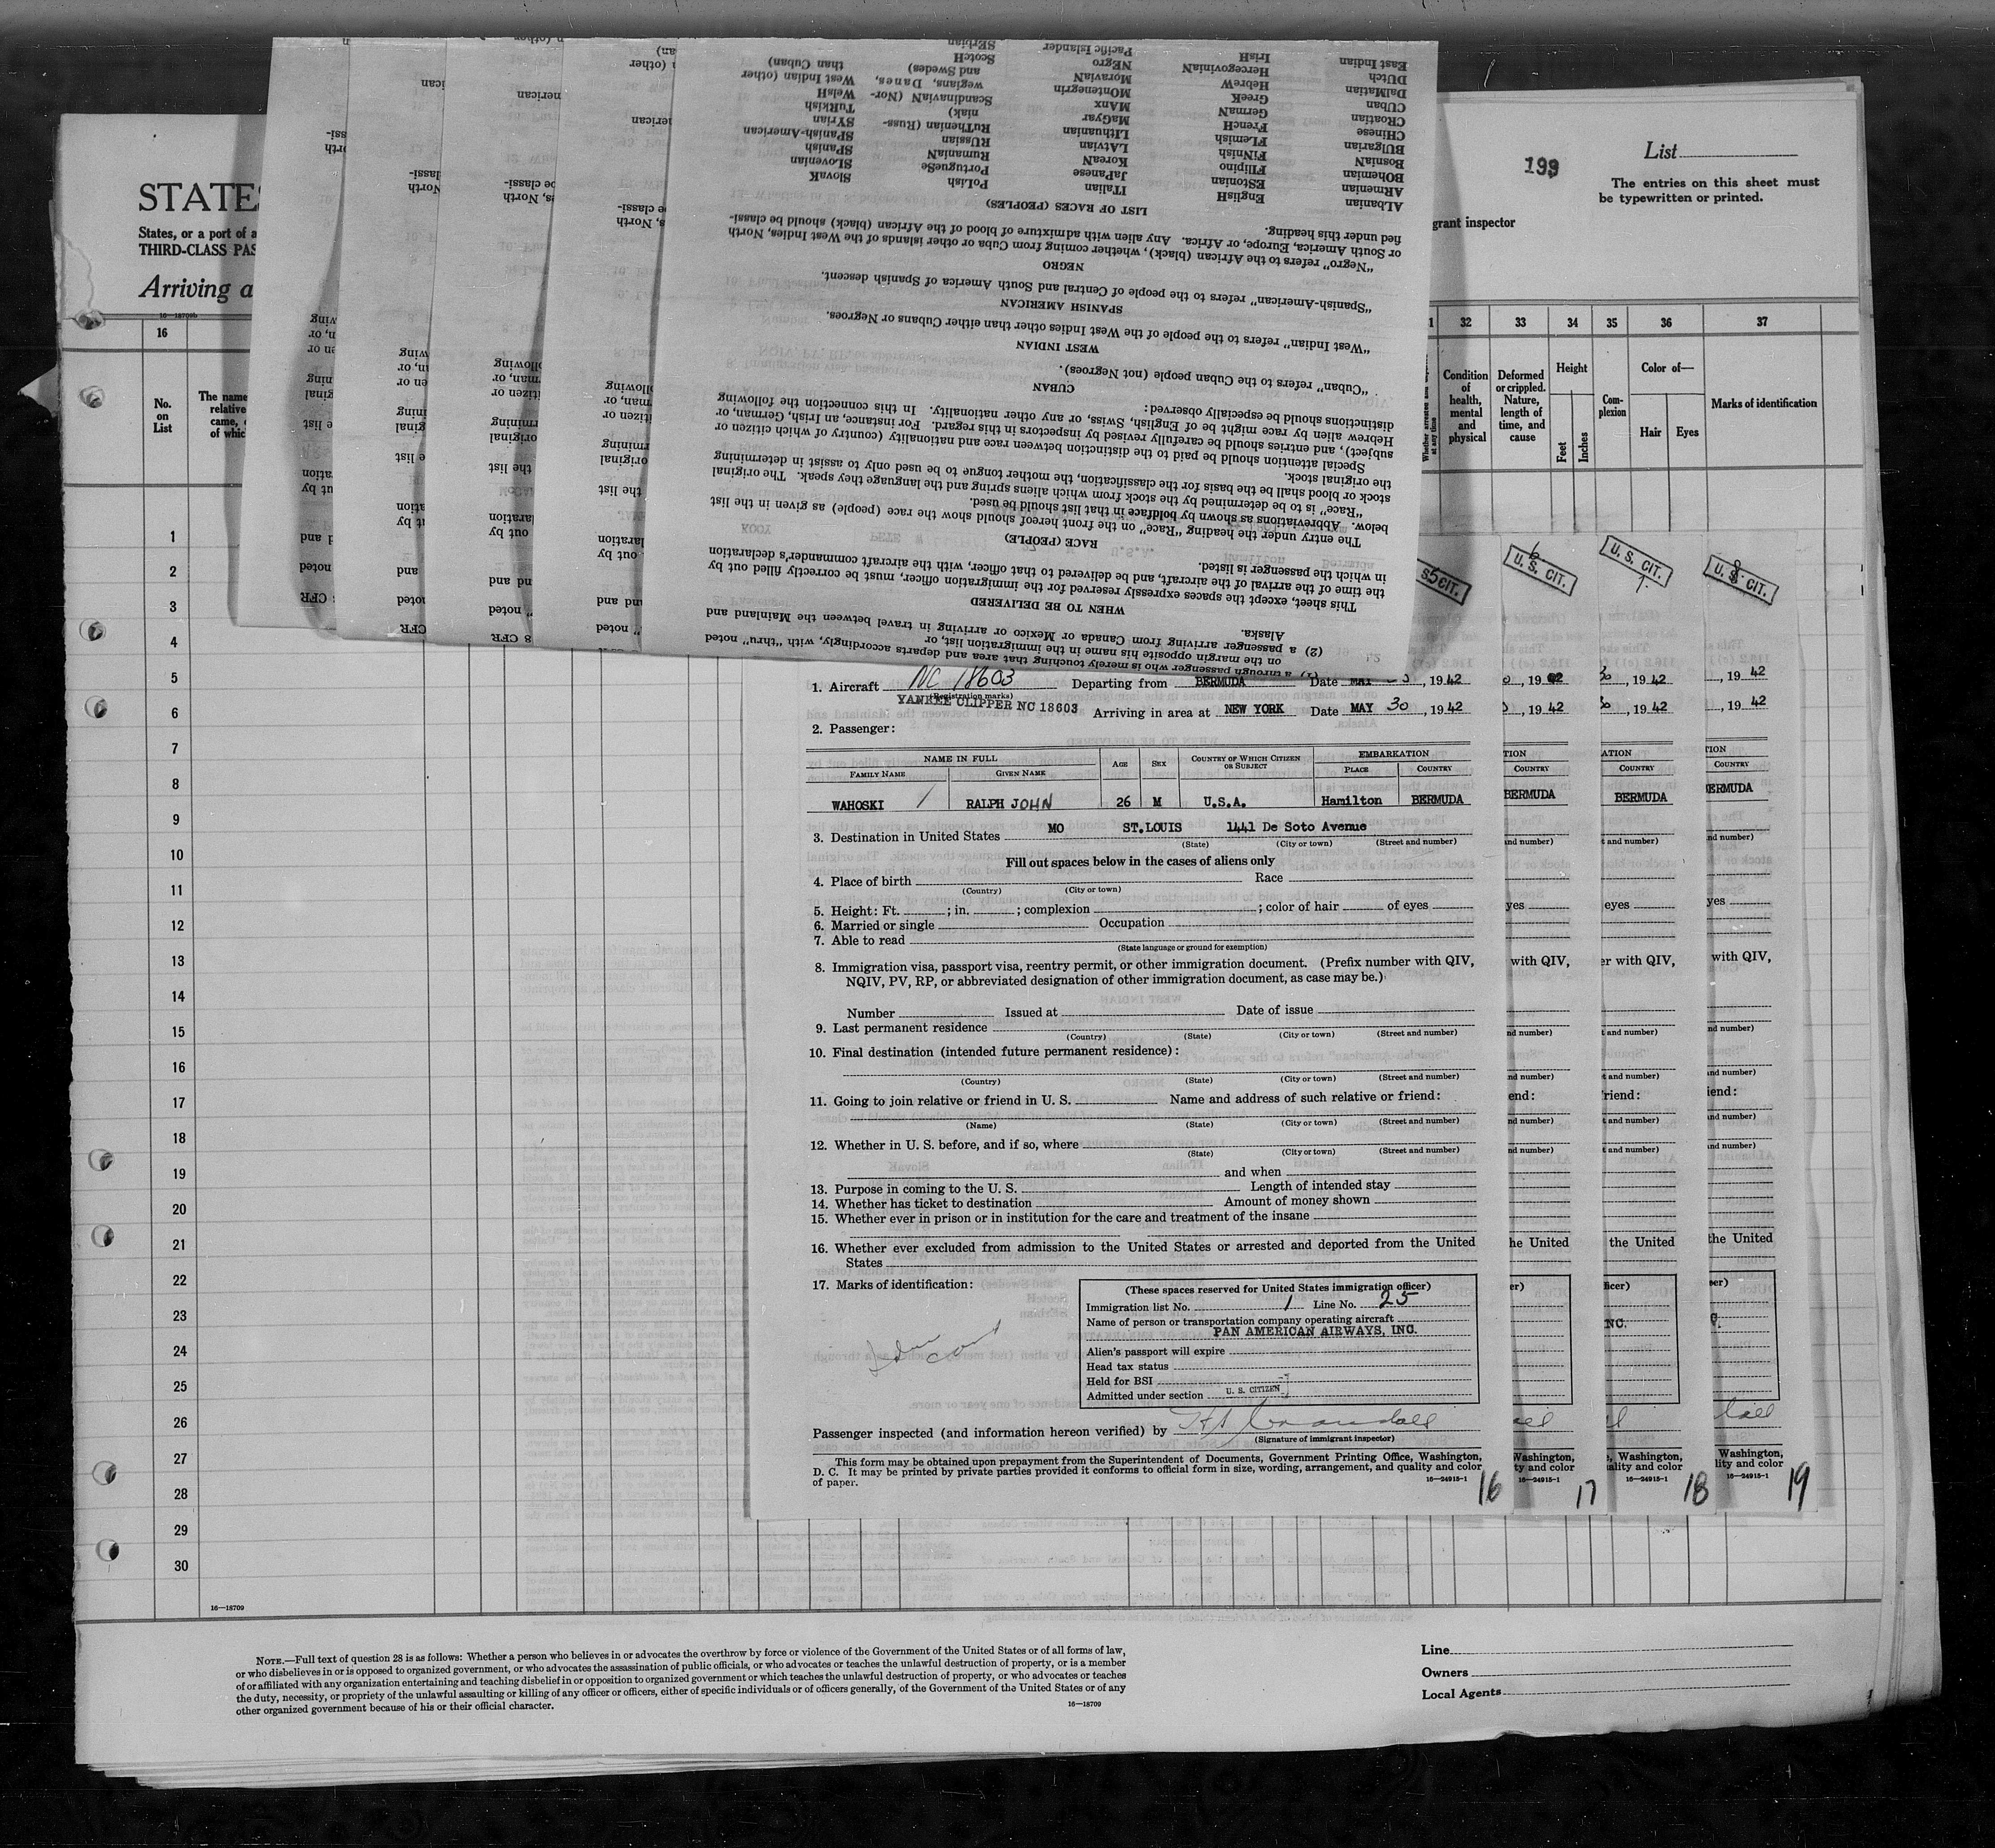 STATES
States, or a port of a
THIRD-CLASS PAS
Arriving a
16—18709b
199
List
The entries on this sheet must
be typewritten or printed.
grant inspector
16
32 33 34 35 36 37
No.
on
List
The name
relative
came,
of whic
Condition
of
health,
mental
and
physical
Deformed
or crippled.
Nature,
length of
time, and
cause
Height
Feet
Inches
Com-
plexion
Color of—
Hair
Eyes
Marks of identification
1
2
3
4
5
6
7
8
9
10
11
12
13
14
15
16
17
18
19
20
21
22
23
24
25
26
27
28
29
30
16—18709
(1) a through passenger who is merely touching that area and departs accordingly, with "thru" noted
on the margin opposite his name in the immigration list, or
(2) a passenger arriving from Canada or Mexico or arriving in travel between the Mainland and
Alaska.
WHEN TO BE DELIVERED
This sheet, except the spaces expressly reserved for the immigration officer, must be correctly filled out by
the time of the arrival of the aircraft, and be delivered to that officer, with the aircraft commander's declaration
in which the passenger is listed.
RACE (PEOPLE)
The entry under the heading "Race" on the front hereof should show the race (people) as given in the list
below. Abbreviations as shown by boldface in that list should be used.
"Race" is to be determined by the stock from which aliens spring and the language they speak. The original
stock or blood shall be the basis for the classification, the mother tongue to be used only to assist in determining
the original stock.
Special attention should be paid to the distinction between race and nationality (country of which citizen or
subject), and entries should be carefully revised by inspectors in this regard. For instance, an Irish, German, or
Hebrew alien by race might be of English, Swiss, or any other nationality. In this connection the following
distinctions should be especially observed:
CUBAN
"Cuban" refers to the Cuban people (not Negroes).
WEST INDIAN
"West Indian" refers to the people of the West Indies other than either Cubans or Negroes.
SPANISH AMERICAN
"Spanish-American" refers to the people of Central and South America of Spanish descent.
NEGRO
"Negro" refers to the African (black), whether coming from Cuba or other islands of the West Indies, North
or South America, Europe, or Africa. Any alien with admixture of blood of the African (black) should be classi-
fied under this heading.
LIST OF RACES (PEOPLES)
ALbanian EnglisH ITalian PoLish SlovaK
ARmenian EStonian JaPanese PortugueSe SLovenian
BOhemian FIlipino KoreaN RumaniaN SPanish
BosniaN FiNnish LAtvian RUssian SPanish-American
BUlgarian FLemish LIthuanian RuThenian (Russ- SYrian
CHinese FrencH MaGyar niak) TuRkish
CRoatian GermaN MAnx Scandinavian (Nor- WelsH
CUban GreeK MOntenegrin wegians, Danes, West Indian (other
DalMatian HebreW MoraviaN and Swedes) than Cuban)
DUtch HercegoviniaN NEgro ScotcH
East Indian IrisH Pacific Islander SErbian
5 CIT.
6
U. S. CIT.
U. S. CIT.
7
U. S. CIT.
8
1. Aircraft NC 18603 Departing from BERMUDA Date MAY , 1942
(Registration marks)
YANKEE CLIPPER NC 18603 Arriving in area at NEW YORK Date MAY 30, 1942
2. Passenger:
NAME IN FULL
FAMILY NAME
GIVEN NAME
AGE
SEX
COUNTRY OF WHICH CITIZEN
OR SUBJECT
EMBARKATION
PLACE
COUNTRY
WAHOSKI / RALPH JOHN 26 M U.S.A. Hamilton BERMUDA
BERMUDA
BERMUDA
ERMUDA
3. Destination in United States MO ST.LOUIS 1441 De Soto Avenue
(State) (City or town) (Street and number)
Fill out spaces below in the cases of aliens only
4. Place of birth Race
(Country) (City or town)
5. Height: Ft. ; in. ; complexion ; color of hair of eyes
6. Married or single Occupation
7. Able to read
(State language or ground for exemption)
8. Immigration visa, passport visa, reentry permit, or other immigration document. (Prefix number with QIV,
NQIV, PV, RP, or abbreviated designation of other immigration document, as case may be.)
Number Issued at Date of issue
9. Last permanent residence
(Country) (State) (City or town) (Street and number)
10. Final destination (intended future permanent residence):
(Country) (State) (City or town) (Street and number)
11. Going to join relative or friend in U. S. Name and address of such relative or friend:
(Name) (State) (City or town) (Street and number)
12. Whether in U. S. before, and if so, where
(State) (City or town) (Street and number)
and when
13. Purpose in coming to the U. S. Length of intended stay
14. Whether has ticket to destination Amount of money shown
15. Whether ever in prison or in institution for the care and treatment of the insane
16. Whether ever excluded from admission to the United States or arrested and deported from the United
States
17. Marks of identification:
(These spaces reserved for United States immigration officer)
Immigration list No. 1 Line No. 25
Name of person or transportation company operating aircraft
PAN AMERICAN AIRWAYS, INC.
Alien's passport will expire
Head tax status
Held for BSI
Admitted under section U. S. CITIZEN
Passenger inspected (and information hereon verified) by
(Signature of immigrant inspector)
This form may be obtained upon prepayment from the Superintendent of Documents, Government Printing Office, Washington,
D. C. It may be printed by private parties provided it conforms to official form in size, wording, arrangement, and quality and color
of paper.
16—24915-1
16
17
18
19
NOTE.—Full text of question 28 is as follows: Whether a person who believes in or advocates the overthrow by force or violence of the Government of the United States or of all forms of law,
or who disbelieves in or is opposed to organized government, or who advocates the assassination of public officials, or who advocates or teaches the unlawful destruction of property, or is a member
of or affiliated with any organization entertaining and teaching disbelief in or opposition to organized government or which teaches the unlawful destruction of property, or who advocates or teaches
the duty, necessity, or propriety of the unlawful assaulting or killing of any officer or officers, either of specific individuals or of officers generally, of the Government of the United States or of any
other organized government because of his or their official character.
16—18709
Line
Owners
Local Agents